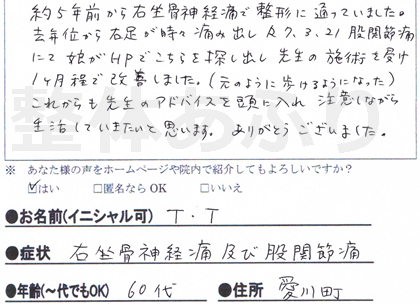 約5年前から右坐骨神経痛で整形に通っていました。
去年位から右足が時々痛み出しR7.3.21股関節痛
にて娘がHPでこちらを探し出し先生の施術を受け
1ヶ月程で改善しました。(元のように歩けるようになった)
これからも先生のアドバイスを頭に入れ注意しながら
生活していきたいと思います。ありがとうございました。
整体あふり
※ あなた様の声をホームページや院内で紹介してもよろしいですか？
☑はい □匿名なら OK □いいえ
●お名前(イニシャル可) T.T
●症状 右坐骨神経痛及び股関節痛
●年齢(～代でもOK) 60代 ●住所 愛川町